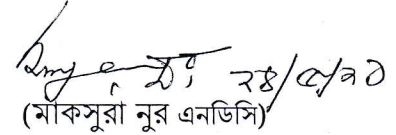 ২৪/৫/২০
(মাকসুরা নুর এনডিসি)